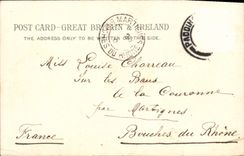 POST CARD-GREAT BRITAIN & IRELAND
THE ADDRESS ONLY TO BE
Miss Louise Charreau
Sur les Bans
à La Couronne
par Martigues
France
Bouches du Rhône